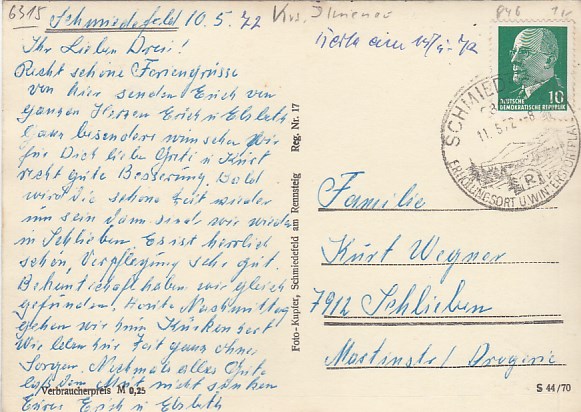 6315
Schmiedefeld 10.5.72
Krs. Ilmenau
846
1x
Ihr Lieben Drei!
Recht schöne Feriengrüsse
von hier senden Erich von
ganzen Herzen Erich u Elsbeth
Ganz besonders wünschen wir
für Dich liebe Guti u Kurt
recht gute Besserung. Bald
wird die schöne Zeit wieder
um sein dann sind wir wieder
in Schlieben. Es ist herrlich
schön, Verpflegung sehr gut.
Bekantschaft haben wir gleich
gefunden. Heute Nachmittag
gehen wir zum Kurkonzert
Wir leben zur Zeit ganz ohne
Sorgen. Nochmals alles Gute
laß den Mut nicht sinken
Eures Erich u Elsbeth
Verbraucherpreis M 0,25
Foto-Kupfer, Schmiedefeld am Rennsteig Reg. Nr. 17
DEUTSCHE
DEMOKRATISCHE REPUBLIK
10
SCHMIED
11.5.72-8
ERHOLUNGSORT U. WINTERSPORTPLATZ
Familie
Kurt Wegner
7912 Schlieben
Martinstr/ Drogerie
S 44/70